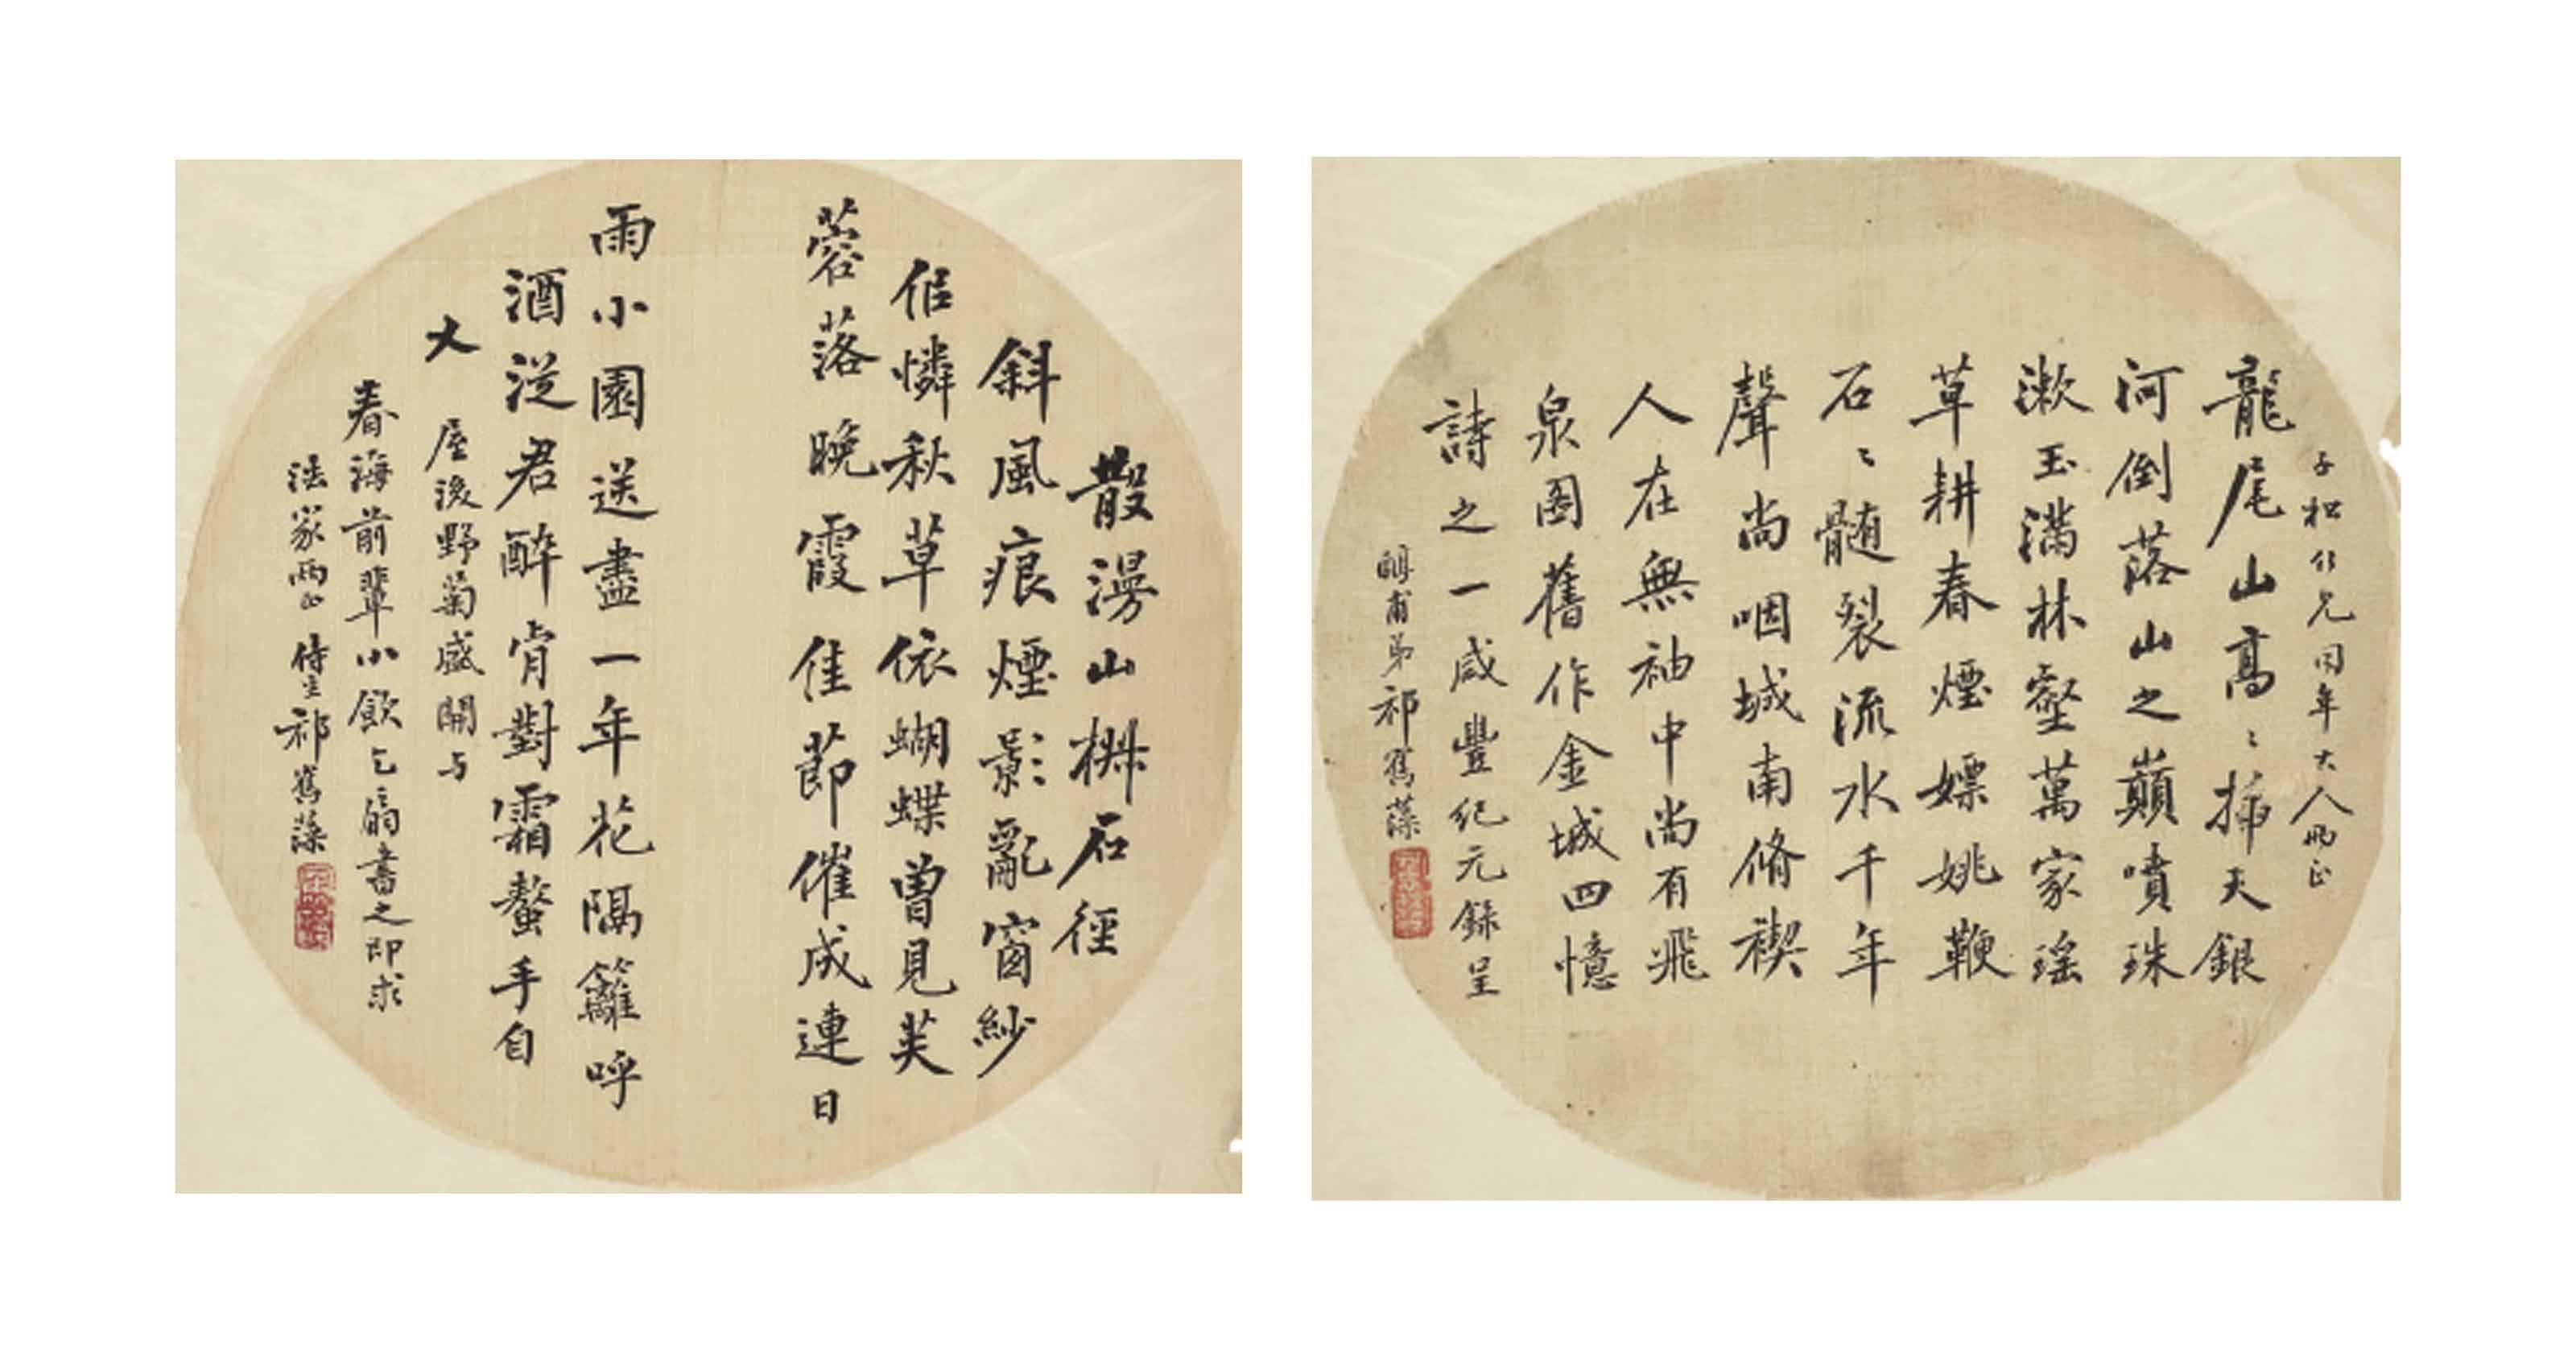 子松仁兄同年大人雨正
龍尾山高〻插天銀
河倒落山之巔噴珠
漱玉滿林壑萬家瑶
草耕春煙嫖姚鞭
石〻髓裂流水千年
聲尚咽城南脩禊
人在無袖中尚有飛
泉圖舊作金城四憶
詩之一咸豐紀元錄呈
甫弟祁寯藻
散漫山椒石徑
斜風痕煙影亂窗紗
佀憐秋草依蝴蝶曾見芙
蓉落晚霞佳節催成連日
雨小園送盡一年花隔籬呼
酒從君醉肯對霜螯手自
叉 屋後野菊盛開与
春海前輩小飲乞扇書之即求
法家兩正侍生祁寯藻